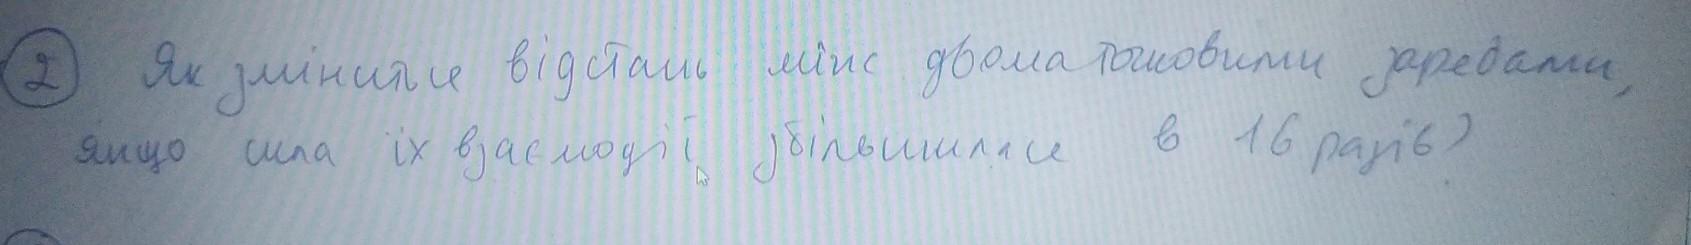 ② Як змінилася відстань між двома точковими зарядами,
якщо сила їх взаємодії збільшилася в 16 разів?